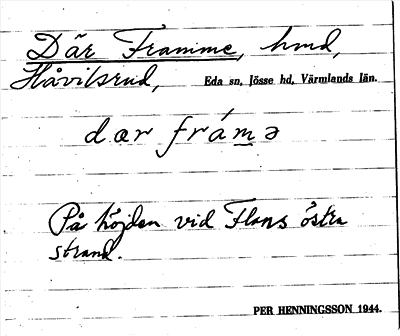 Där Framme, hmd,
Håvilsrud, Eda sn, Jösse hd, Värmlands län.
dær frámə
På höjden vid Flans östra
strand.
PER HENNINGSSON 1944.